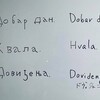 Добар дан. Dobar d
Хвала. Hvala.
Довиђења. Doviđenj